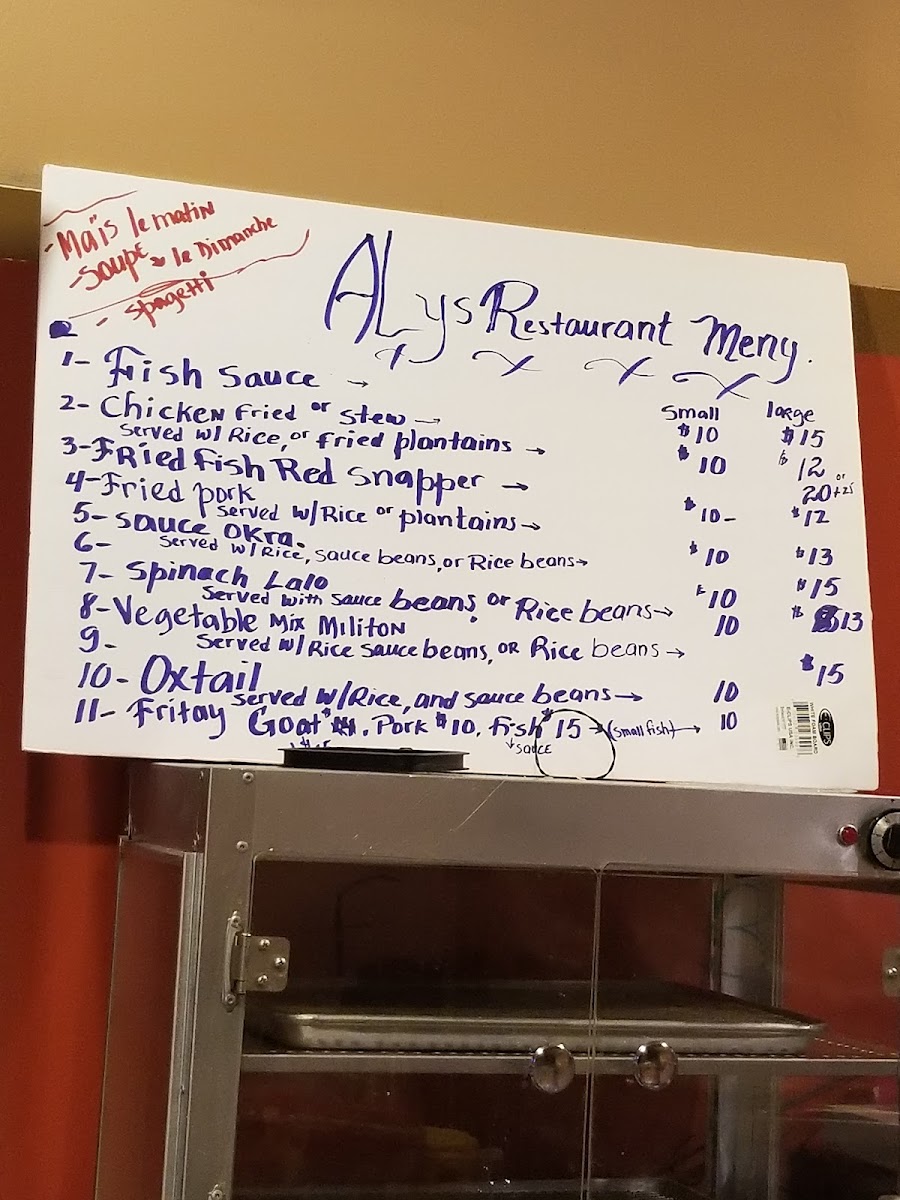 - Maïs le matin
- Soupe le Dimanche
- Spagetti
ALys Restaurant Meny.
small large
1- Fish sauce → $10 $15
2- Chicken Fried or stew →
Served w/ Rice, or fried plantains → $10 $12
3- Fried Fish Red snapper → 20 or + 25
4- Fried pork
served w/Rice or plantains → $10- $12
5- sauce okra.
6- Served w/ Rice, sauce beans, or Rice beans → $10 $13
7- Spinach Lalo $15
Served with sauce beans or Rice beans → $10
8- Vegetable Mix Militon 10 $13
9- Served w/Rice sauce beans, OR Rice beans →
10- Oxtail $15
served w/Rice, and sauce beans → 10
11- Fritay Goat. Pork $10. Fish $15 → (small fish) → 10
sauce
CLIPS
WHITE FOAM BOARD